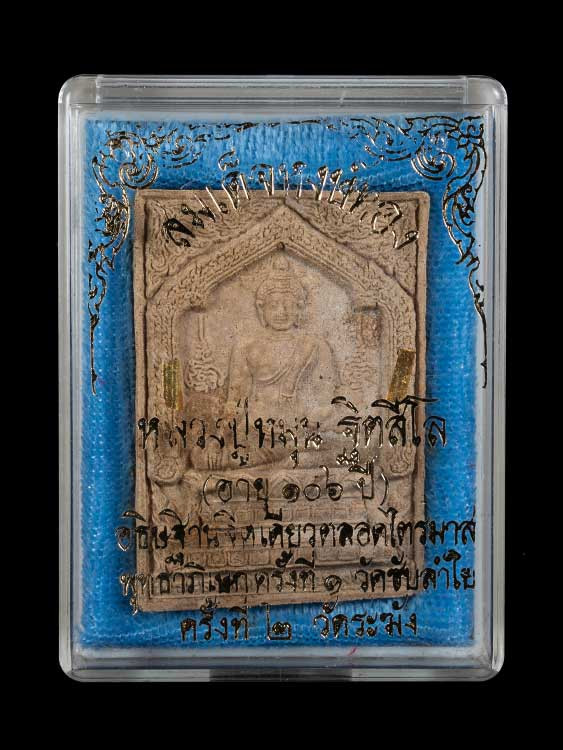 สมเด็จนางพญา
หลวงปู่หมุน ฐิตสีโล
(อายุ ๑๐๖ ปี)
อธิษฐานจิตเดียวตลอดไตรมาส
พุทธาภิเษกครั้งที่ ๑ วัดซับลำใย
ครั้งที่ ๒ วัดระฆัง